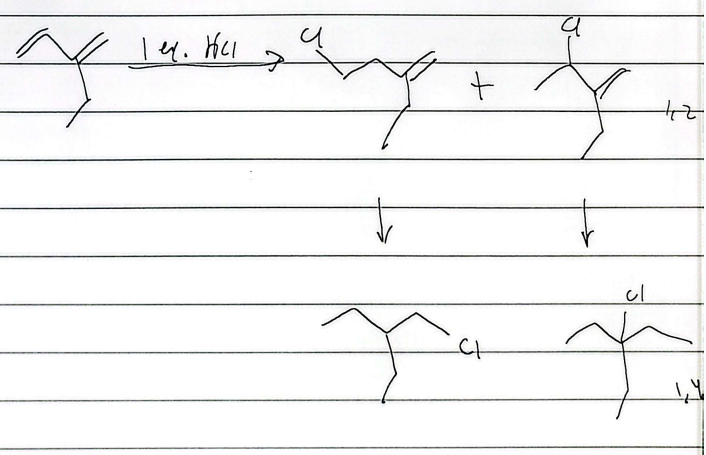 Cl
Cl
1 eq. HCl
+
1,2
Cl
Cl
1,4